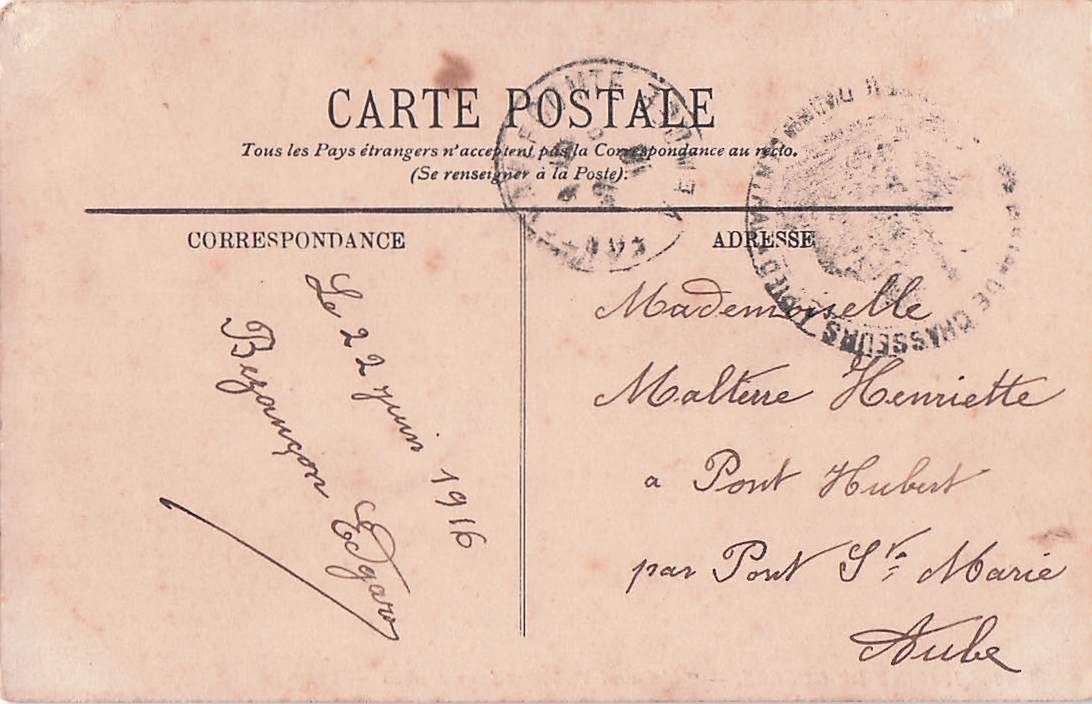 CARTE POSTALE
Tous les Pays étrangers n'acceptent pas la Correspondance au recto.
(Se renseigner à la Poste).
CORRESPONDANCE
Le 22 juin 1916
Bezançon Edgard
ADRESSE
Mademoiselle
Malterre Henriette
a Pont Hubert
par Pont Ste Marie
Aube
DE CHASSEURS A PIED